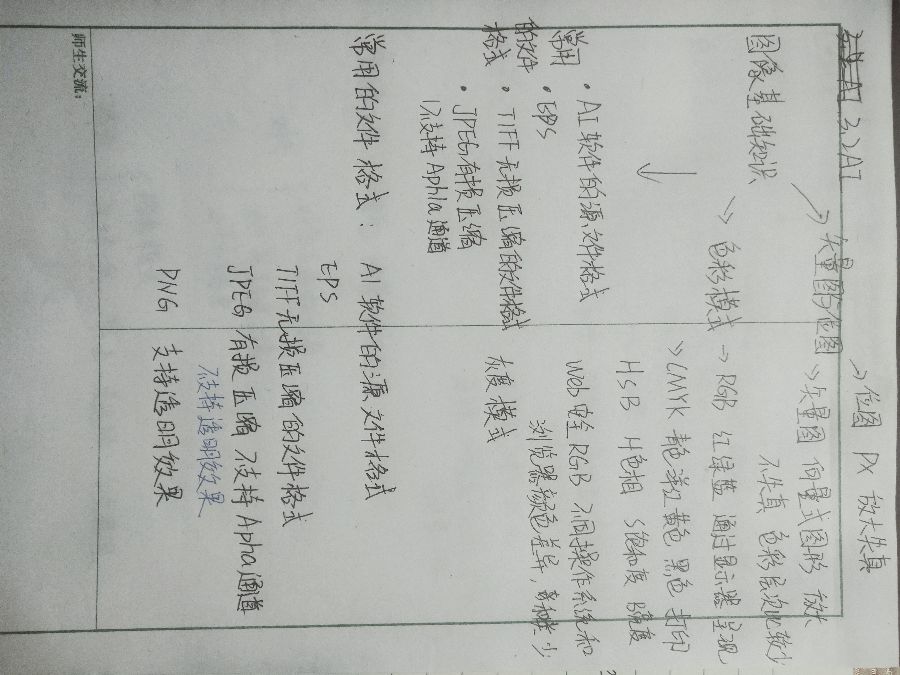 3.2 AI
→ 位图 PX 放大失真
图像基础知识
→ 矢量图与位图
→ 矢量图 向量式图形 放大
不失真 色彩层次比较少
→ 色彩模式 → RGB 红绿蓝 通过显示器呈现
→ CMYK 青色 洋红 黄色 黑色 打印
HSB H色相 S饱和度 B亮度
Web安全RGB 不同操作系统和
浏览器颜色差异,少
灰度模式
常用
的文件
格式
• AI 软件的源文件格式
• EPS
• TIFF 无损压缩的文件格式
• JPEG 有损压缩
不支持Aphla通道
常用的文件格式: AI 软件的源文件格式
EPS
TIFF 无损压缩的文件格式
JPEG 有损压缩 不支持Apha通道
不支持透明效果
PNG 支持透明效果
师生交流: